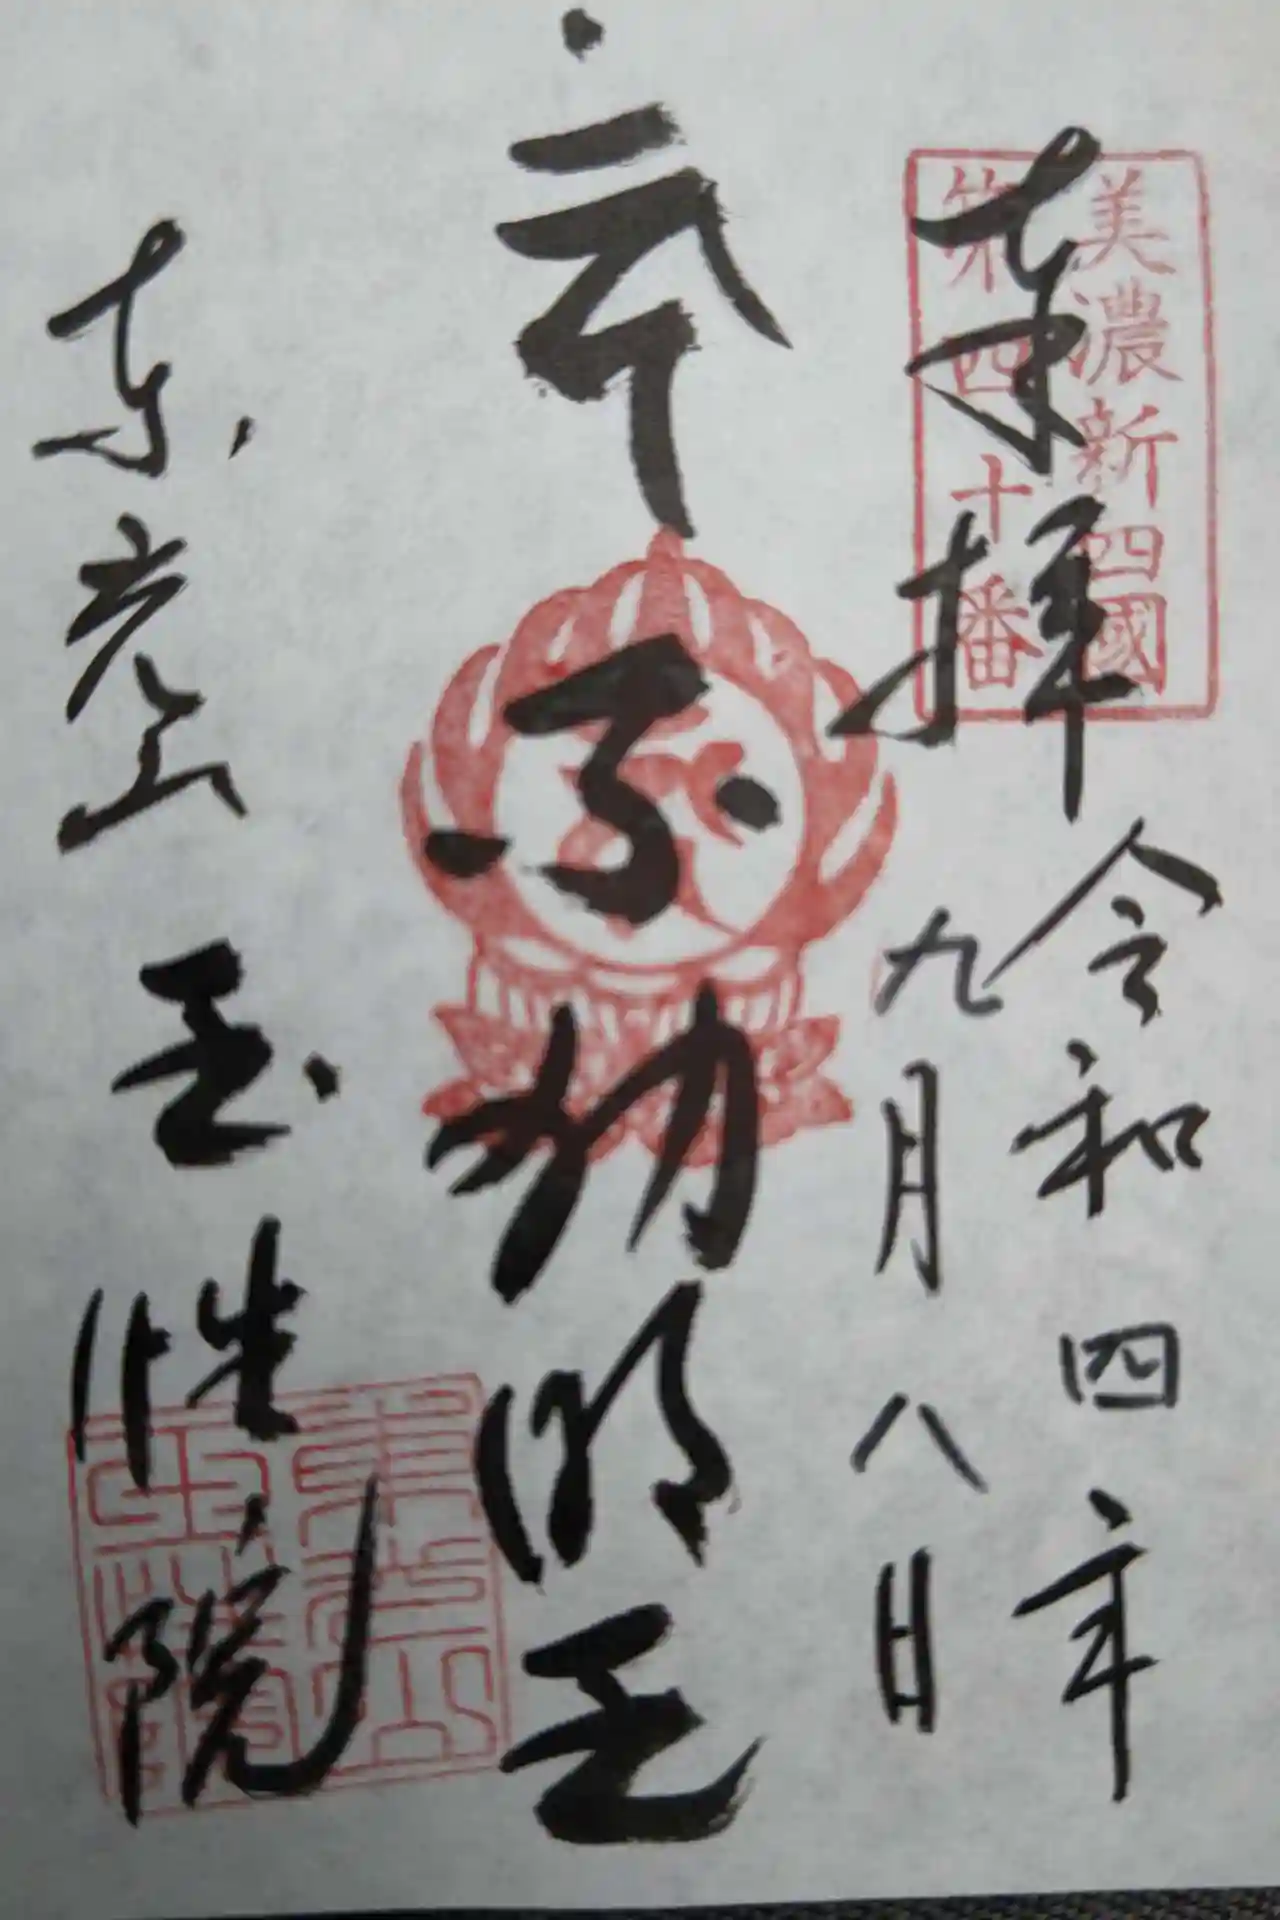 美濃新四國
第四十番
奉拝
令和四年
九月八日
不動明王
東光山
玉性院
東光山
玉性院